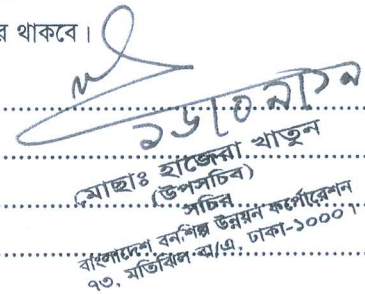 র থাকবে।
(মোছাঃ হাজেরা খাতুন
(উপসচিব)
সচিব
বাংলাদেশ বনশিল্প উন্নয়ন কর্পোরেশন
৭৩, মতিঝিল বা/এ, ঢাকা-১০০০।